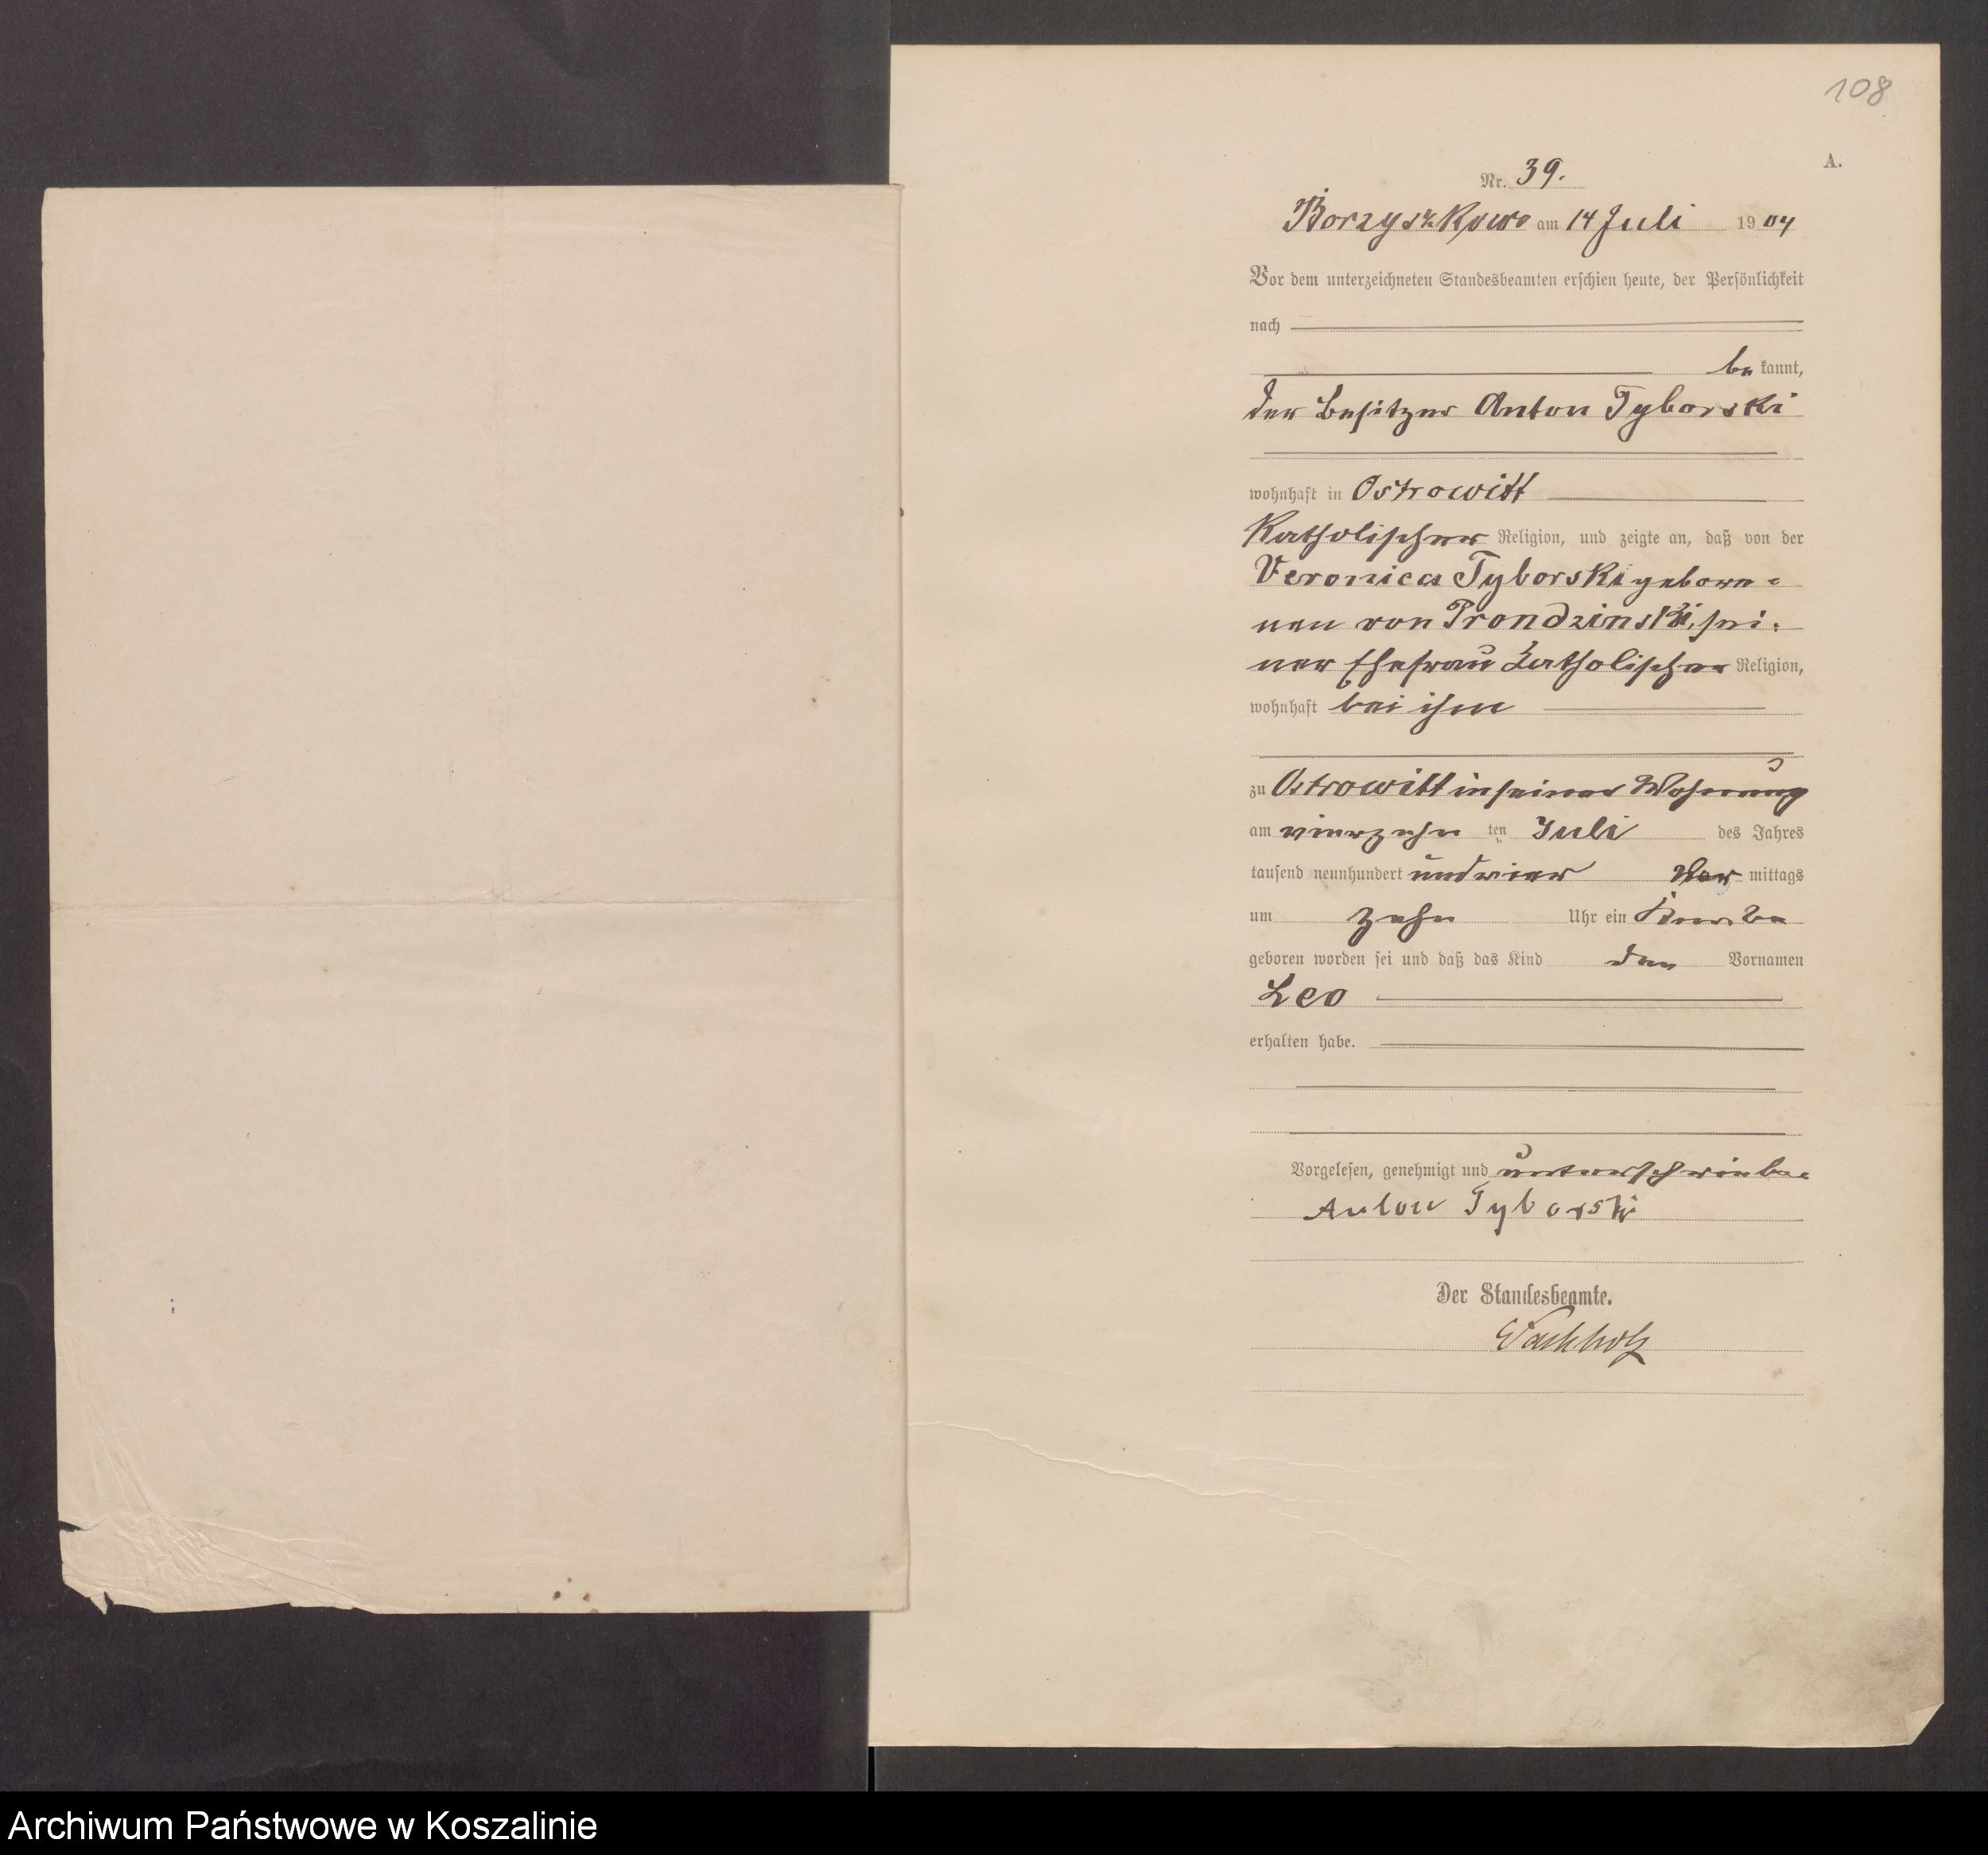 108
A.
Nr. 39.
Borzyszkowo am 14 Juli 1904
Vor dem unterzeichneten Standesbeamten erschien heute, der Persönlichkeit
nach
be kannt,
der Besitzer Anton Tyborski
wohnhaft in Ostrowitt
Katholischer Religion, und zeigte an, daß von der
Veronica Tyborski gebore-
nen von Prondzinski, sei-
ner Ehefrau katholischer Religion,
wohnhaft bei ihm
zu Ostrowitt in seiner Wohnung
am vierzehn ten Juli des Jahres
tausend neunhundert und vier Vor mittags
um zehn Uhr ein Knabe
geboren worden sei und daß das Kind den Vornamen
Leo
erhalten habe.
Vorgelesen, genehmigt und unterschrieben
Anton Tyborski
Der Standesbeamte.
Archiwum Państwowe w Koszalinie